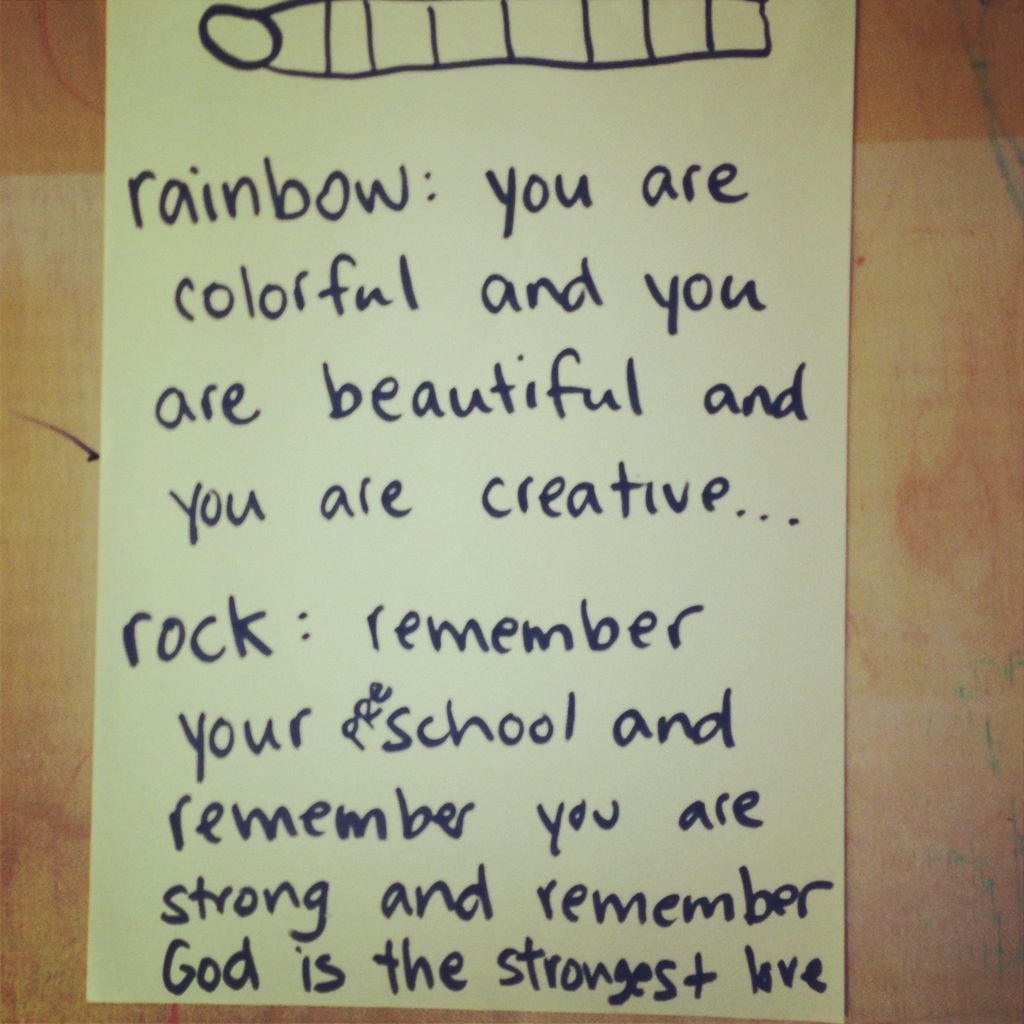 rainbow: you are
colorful and you
are beautiful and
you are creative...
rock: remember
your preschool and
remember you are
strong and remember
God is the strongest love